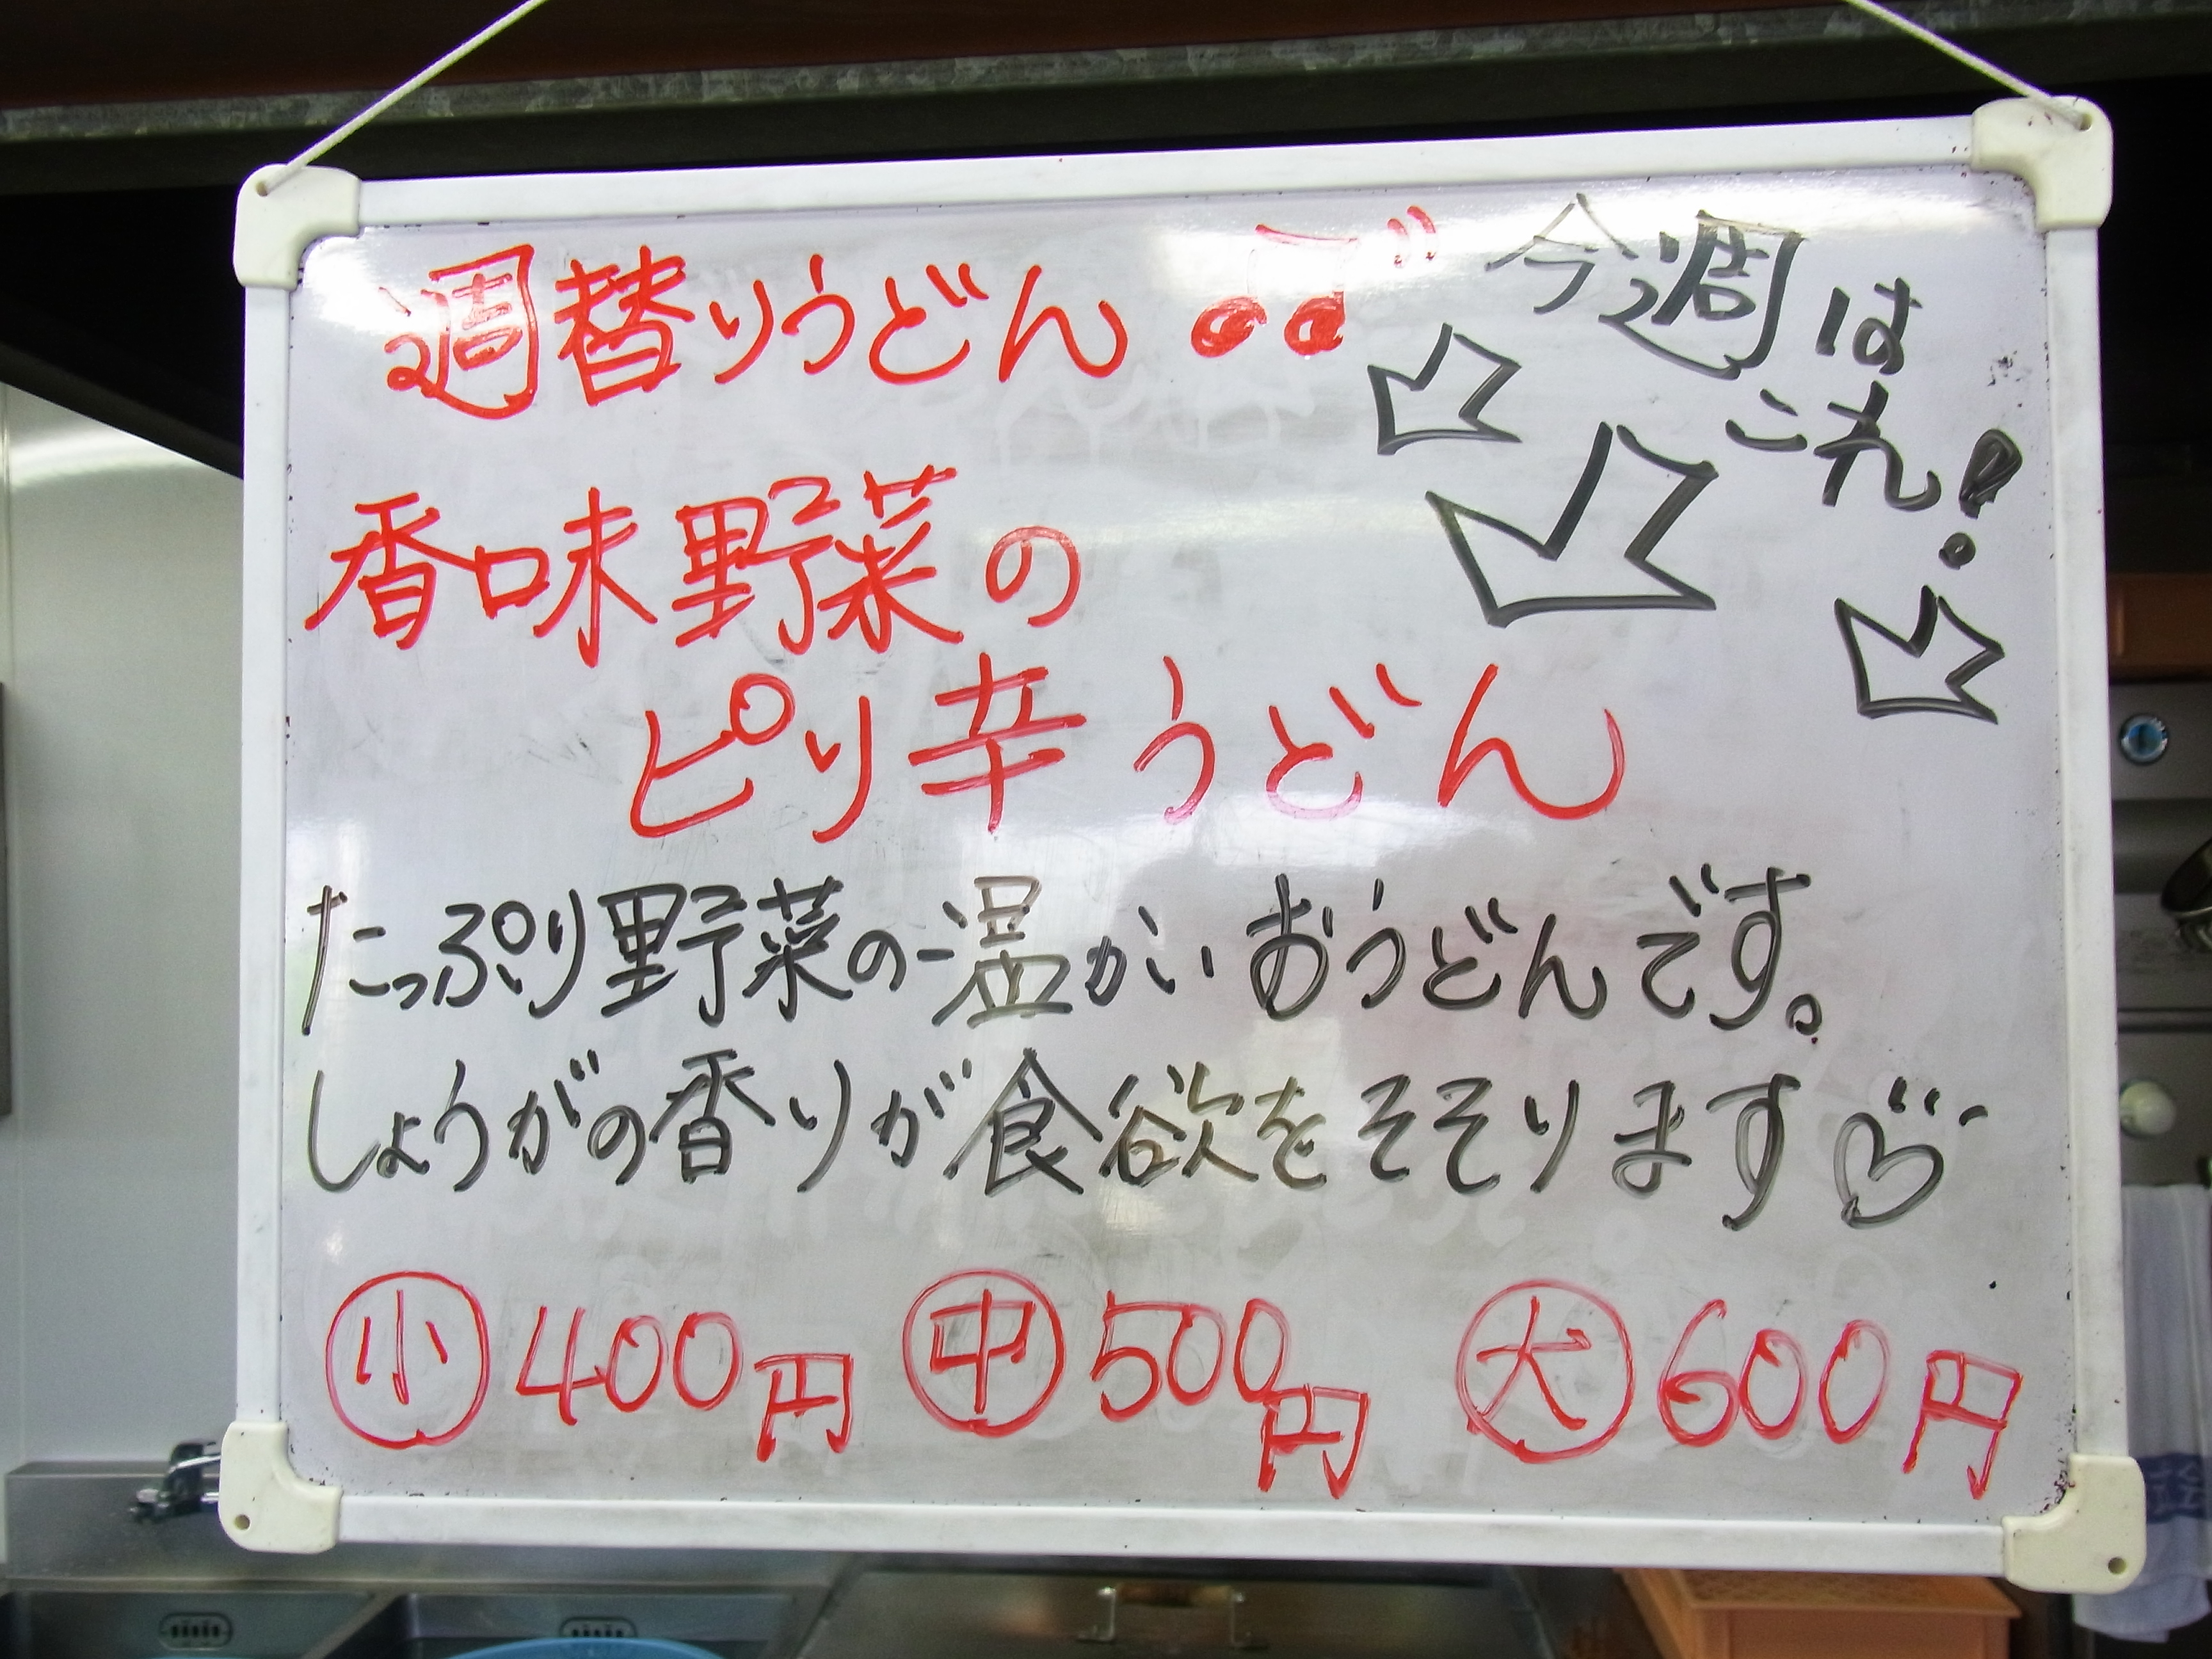 週替りうどん♫
今週は
これ!
香味野菜の
ピリ辛うどん
たっぷり野菜の温かいおうどんです。
しょうがの香りが食欲をそそります♡
小 400円 中 500円 大 600円